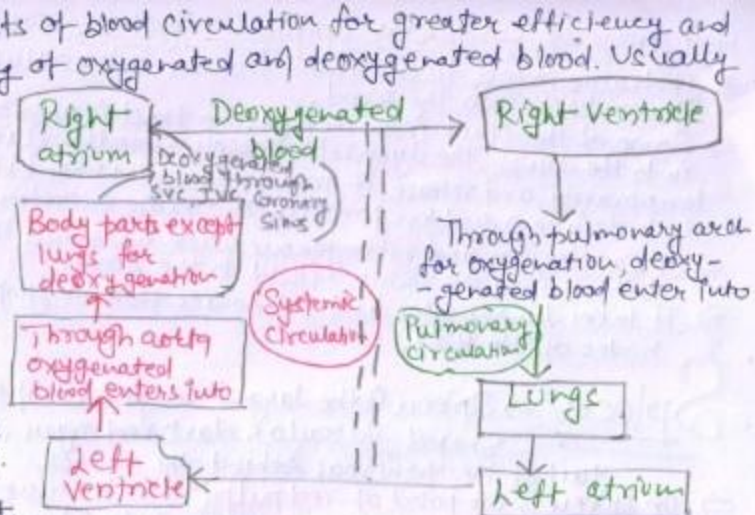 ts of blood circulation for greater efficiency and
g of oxygenated and deoxygenated blood. Usually
Right
atrium
Deoxygenated
blood
Right Ventricle
Deoxygenated
blood through
SVC, IVC, Coronary
Sinus
Body parts except
lungs for
deoxygenation
Through pulmonary arch
for oxygenation, deoxy-
-genated blood enter into
Systemic
Circulation
Pulmonary
circulation
Through aorta
oxygenated
blood enters into
Lungs
Left
ventricle
Left atrium